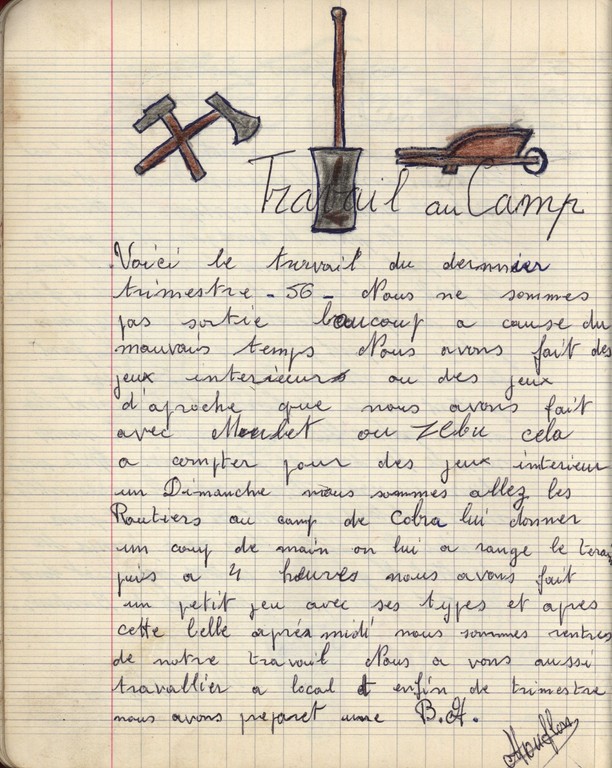 Travail au Camp
Voici le travail du dernnier
trimestre - 56 - Nous ne sommes
pas sortie beaucoup a cause du
mauvais temps Nous avons fait des
jeux interieurs ou des jeux
d'aproche que nous avons fait
avec ou Zebu cela
a compter pour des jeux interieur
un Dimanche nous sommes allez les
Routiers au camp de Cobra lui donner
un coup de main on lui a range le terain
puis a 4 heures nous avons fait
un petit jeu avec ses types et apres
cette belle après midi nous sommes rentres
de notre travail Nous a vons aussi
travallier a local et enfin de trimestre
nous avons preparet une B.A.